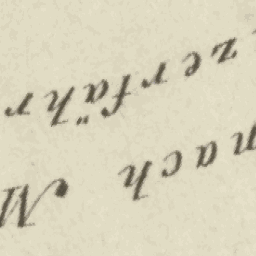 nach M
zerfähr